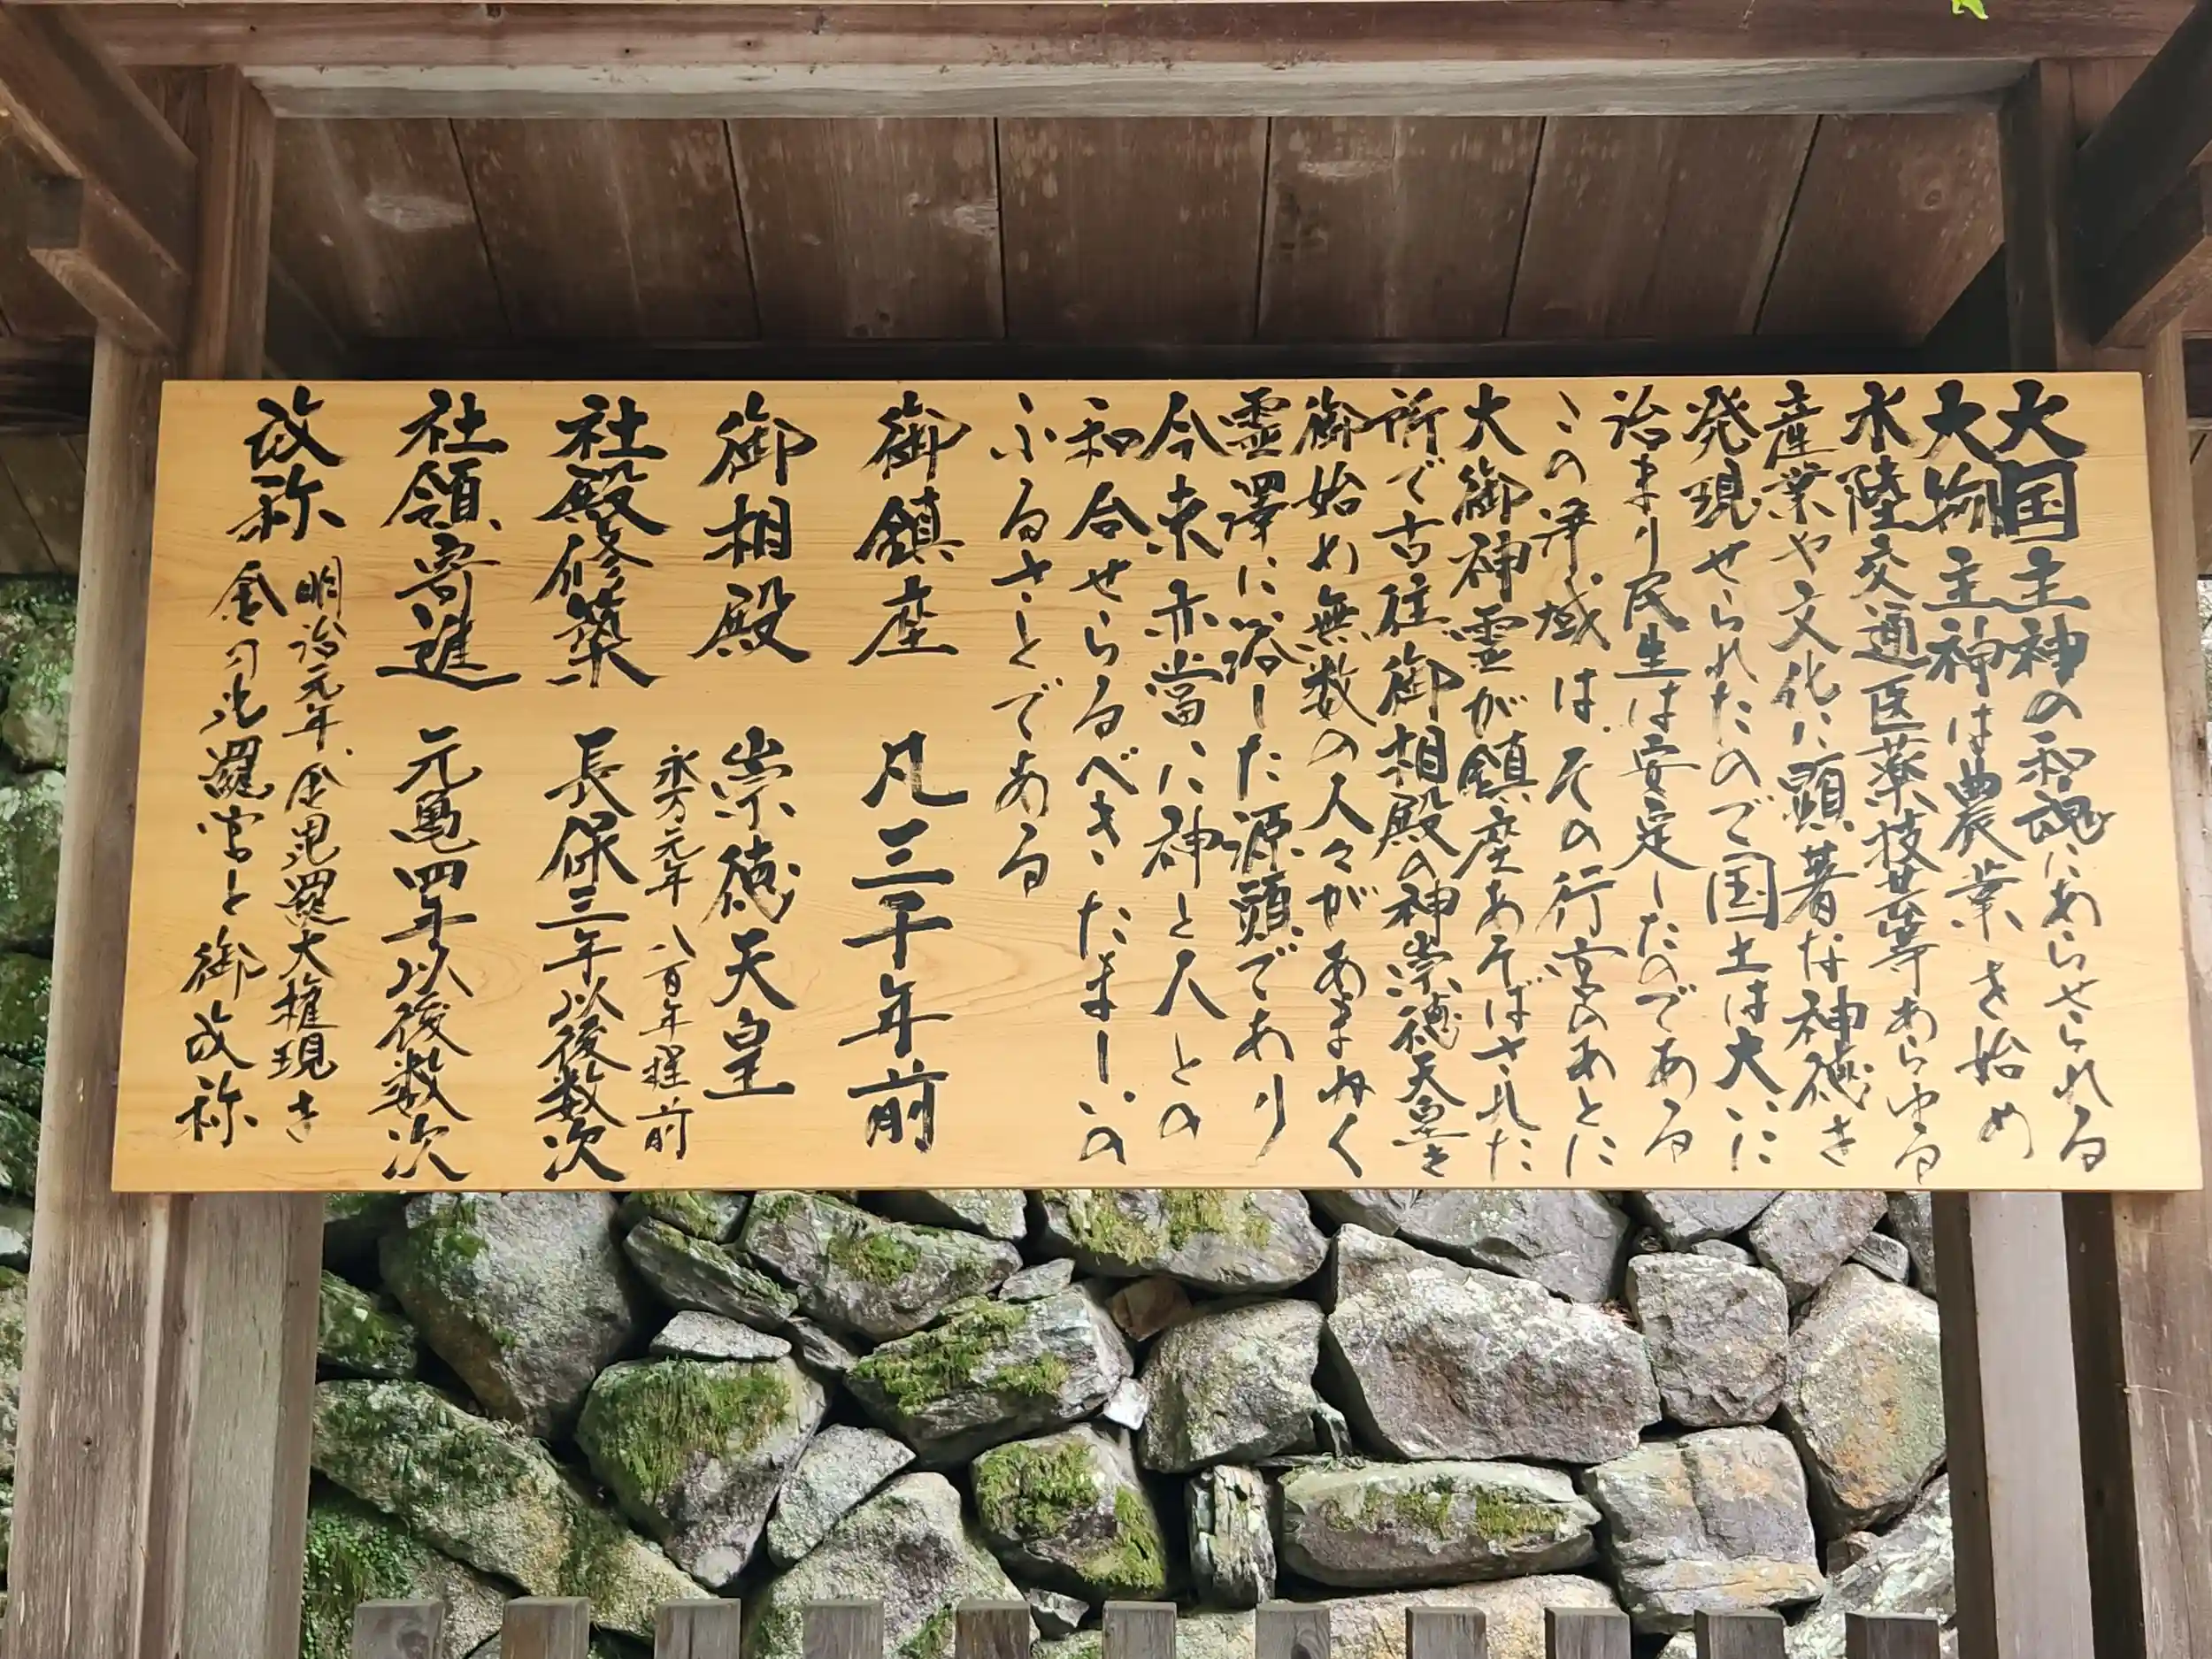 大国主神の和魂にあらせられる
大物主神は農業を始め
水陸交通医薬技芸等あらゆる
産業や文化に顕著な神徳を
発現せられたので国土は大いに
治まり民生は安定したのである
この浄域はその行宮のあとに
大御神霊が鎮座あそばされた
所で古往御相殿の神崇徳天皇を
御始め無数の人々があまねく
霊澤に浴した源頭であり
今来亦當に神と人との
和合せらるべきたましいの
ふるさとである
御鎮座 凡三千年前
御相殿 崇徳天皇
永万元年 八百年程前
社殿修築 長保三年以後数次
社領寄進 元亀四年以後数次
改称 明治元年金毘羅大権現を
金刀比羅宮と御改称